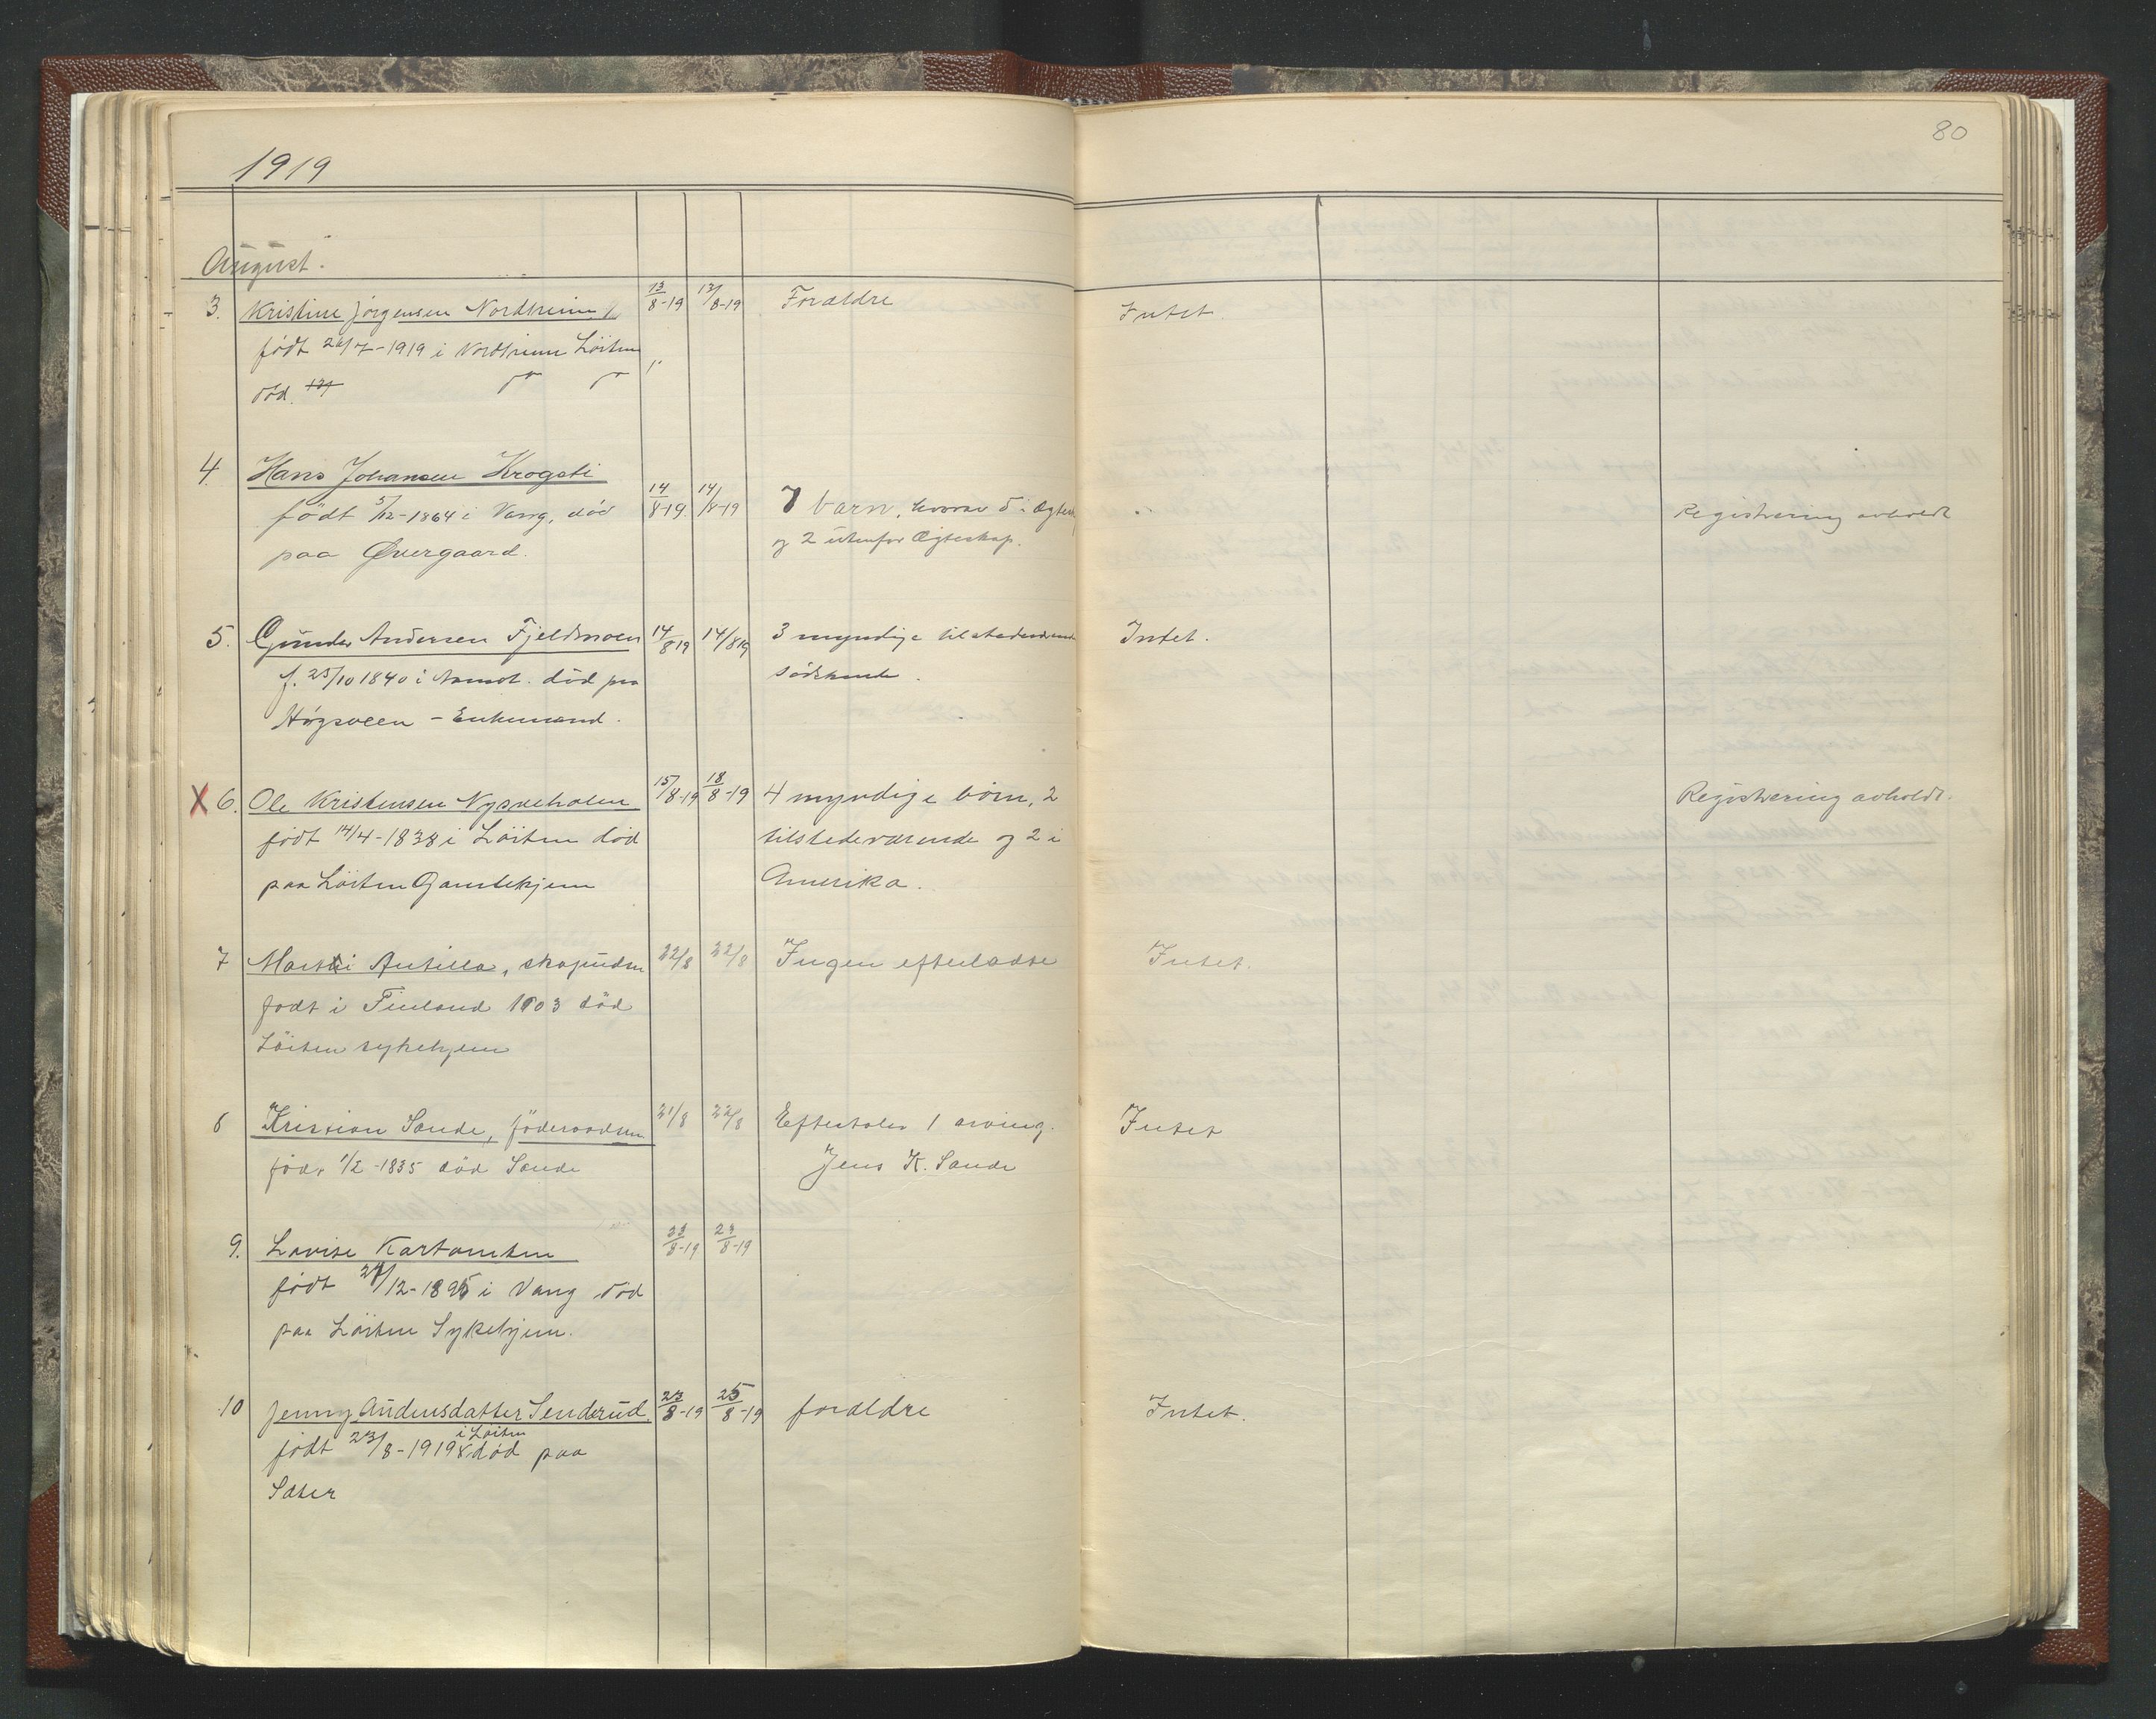 1919
80
August.
3. Kristine Jörgensen Nordheim
13/8-19 13/8-19 Foraldre Intet
født 26/7-1919 i Nordheim Löiten
død
4. Hans Johansen Krogsti
14/8-19 14/8-19 7 barn, hvorav 5 i Ægtesk
Registrering avholdt
født 5/12-1864 i Vang, død
og 2 utenfor Ægteskap.
paa Øvergaard.
5. Gunder Andersen Fjeldmoen
14/8 19 14/8 19 3 myndige tilstedeværende Intet.
f. 25/10 1840 i Aamot. død paa
södskende.
Högsveen - Enkemand.
X 6. Ole Kristensen Nysveholen
15/8-19 18/8-19 4 myndige börn, 2
Registrering avholdt.
født 14/4-1838 i Löiten död
tilstedeværende og 2 i
paa Löiten Gamlehjem
Amerika.
7 Martti Antilla,
22/8 22/8 Ingen efterladte Intet.
født i Finland 1903 död
Löiten sykehjem
8 Kristian Sande, föderaadsm
21/8 22/8 Efterlater 1 arving. Intet
föd. 1/2-1835 död Sande
Jens K. Sande
9. Lovise
23/8-19 23/8-19
født 27/12-1895 i Vang död
paa Löiten Sykehjem.
10 Jenny Audensdatter Senderud
23/8-19 25/8-19 foraldre Intet.
i Löiten
født 23/8-1919 død paa
Sæter